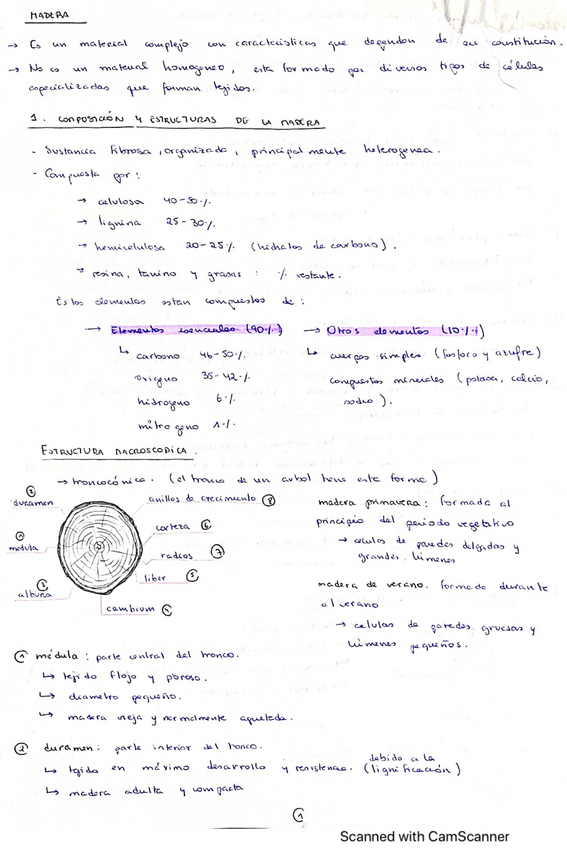 MADERA
→ Es un material complejo con características que dependen de su constitución.
→ No es un material homogeneo, esta formado por diversos tipos de células
especializadas que forman tejidos.
1. COMPOSICIÓN Y ESTRUCTURAS DE LA MADERA
- Sustancia fibrosa, organizada, principalmente heterogenea.
- Compuesta por:
→ celulosa 40-50%
→ lignina 25-30%
→ hemicelulosa 20-25% (hidratos de carbono).
→ resina, tanino y grasas: % restante.
Estos elementos estan compuestos de:
→ Elementos esenciales (90%) → Otros elementos (10%)
↳ carbono 46-50% ↳ cuerpos simples (fosforo y azufre)
oxigeno 38-42% compuestos minerales (potasa, calcio,
hidrogeno 6% sodio).
nitrogeno 1%
ESTRUCTURA MACROSCOPICA.
→ troncocónica. (el tronco de un arbol tiene esta forma)
② duramen
anillos de crecimiento ⑧
corteza ⑥
① medula
radios ⑦
liber ⑤
③ albura
cambium ④
madera primavera: formada al
principio del periodo vegetativo
→ celulas de paredes delgadas y
grandes lúmenes
madera de verano. formada durante
el verano
→ celulas de paredes gruesas y
lúmenes pequeños.
① médula: parte central del tronco.
↳ tejido flojo y poroso.
↳ diametro pequeño.
↳ madera vieja y normalmente agrietada.
② duramen: parte interior del tronco.
↳ tejido en máximo desarrollo y resistencia. debido a la (lignificación)
↳ madera adulta y compacta
①
Scanned with CamScanner